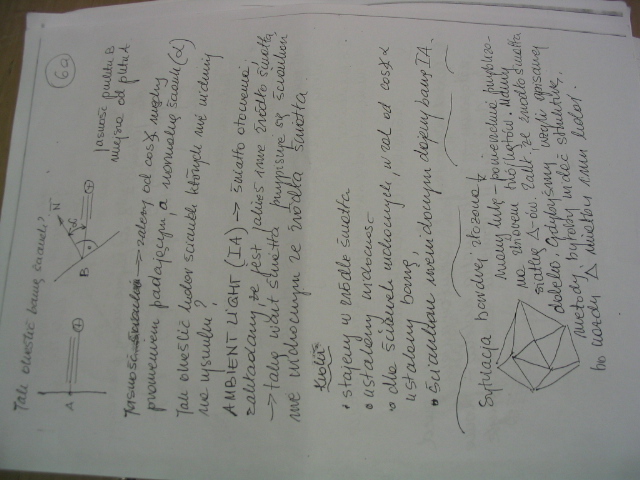 6a
Jak określić barwę ścianek?
A
B
N
α
jasność punktu B
mniejsza od punktu A
Jasność ścianki → zależy od cos ∡ między
promieniem padającym, a normalną ścianki (α)
Jak określić kolor ścianek których nie widzimy
na rysunku?
AMBIENT LIGHT (IA) → światło otoczenia
zakładamy że jest jakieś inne źródło światła
→ taką wart. światła przypisuje się ściankom
nie widocznym ze źródła światła
Kroki
• stajemy w źródle światła
• ustalamy widoczność
• dla ścianek widocznych, w zal od cos ∡ α
ustalamy barwę,
• ściankom niewidocznym dajemy barwę IA.
Sytuacja bardziej złożona
mamy kulę – powierzchnię
na zbiorem trójkątów. Mamy
siatkę Δ-ów. Zał. że źródło światła
daleko. Gdybyśmy wzięli opisaną
metodę byłoby widać strukturę,
bo każdy Δ miałby inny kolor.